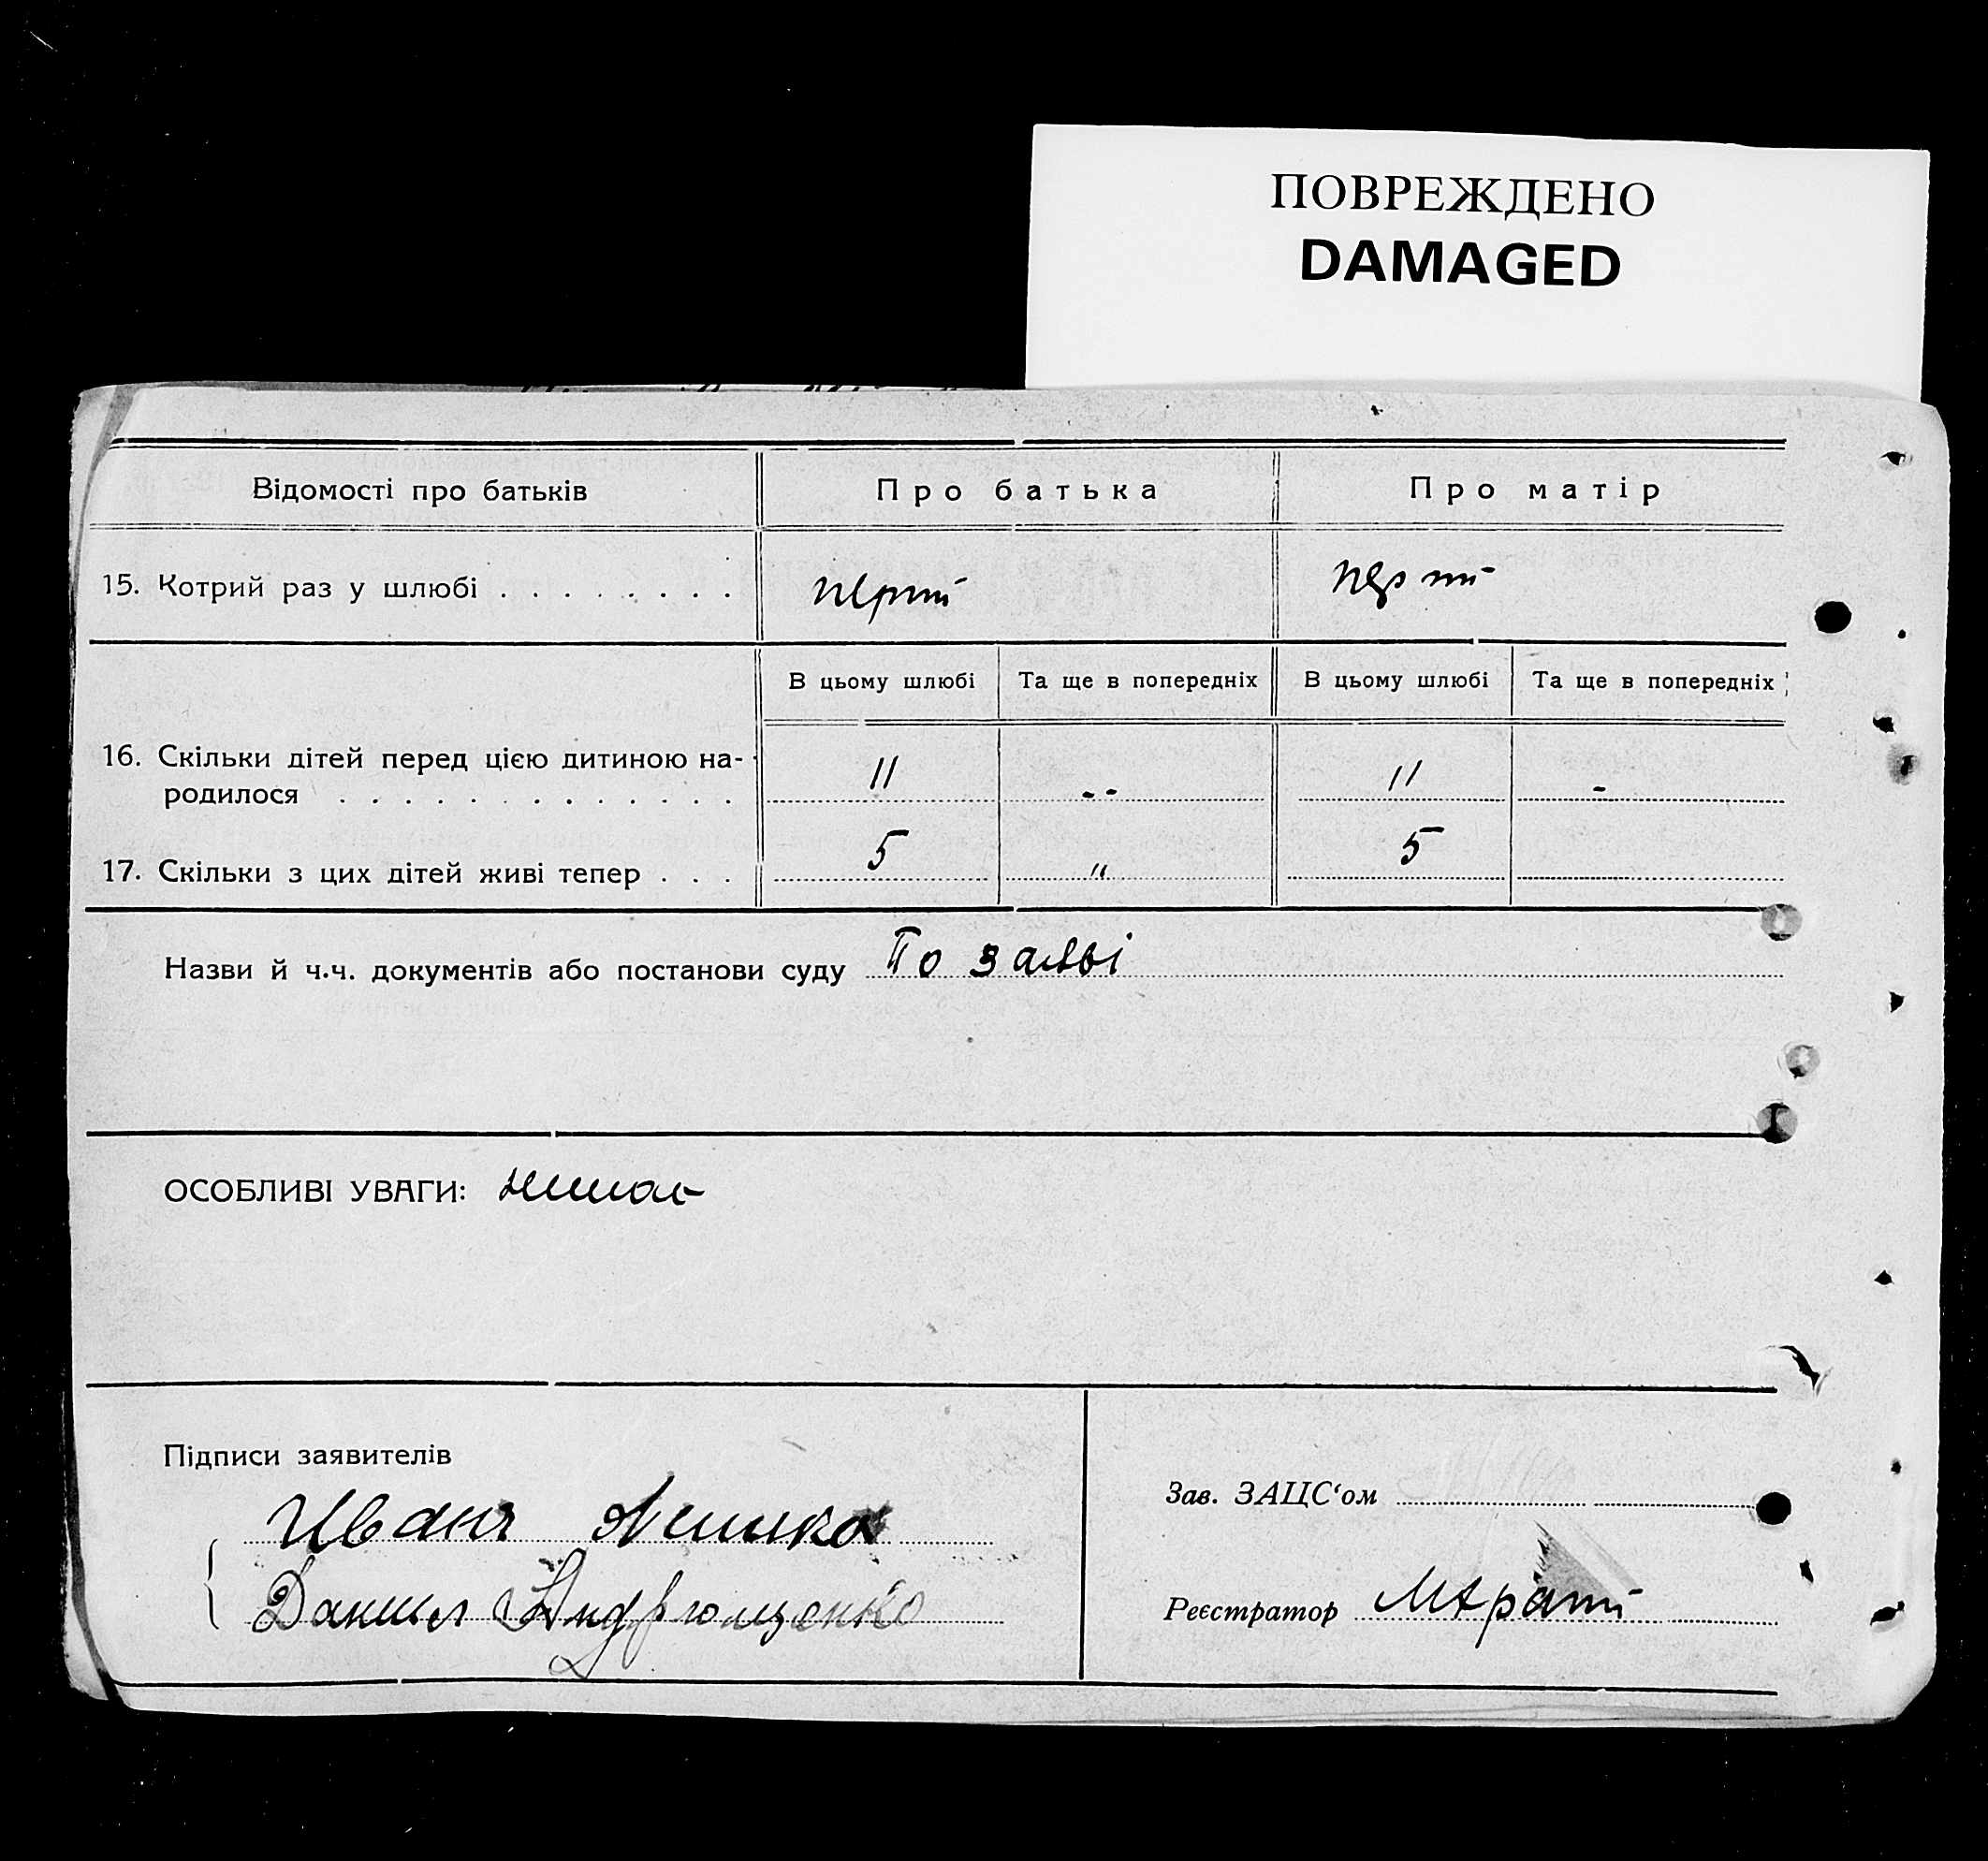 ПОВРЕЖДЕНО
DAMAGED
Відомості про батьків Про батька Про матір
15. Котрий раз у шлюбі . . . . . . . . перший перший
В цьому шлюбі Та ще в попередніх В цьому шлюбі Та ще в попередніх
16. Скільки дітей перед цією дитиною на-
родилося . . . . . . . . . . . . . 11 -- 11 -
17. Скільки з цих дітей живі тепер . . . 5 " 5
Назви й ч.ч. документів або постанови суду По заяві
ОСОБЛИВІ УВАГИ: немає
Підписи заявителів
Иванъ
Данило Андрющенко
Зав. ЗАЦС‘ом
Реєстратор